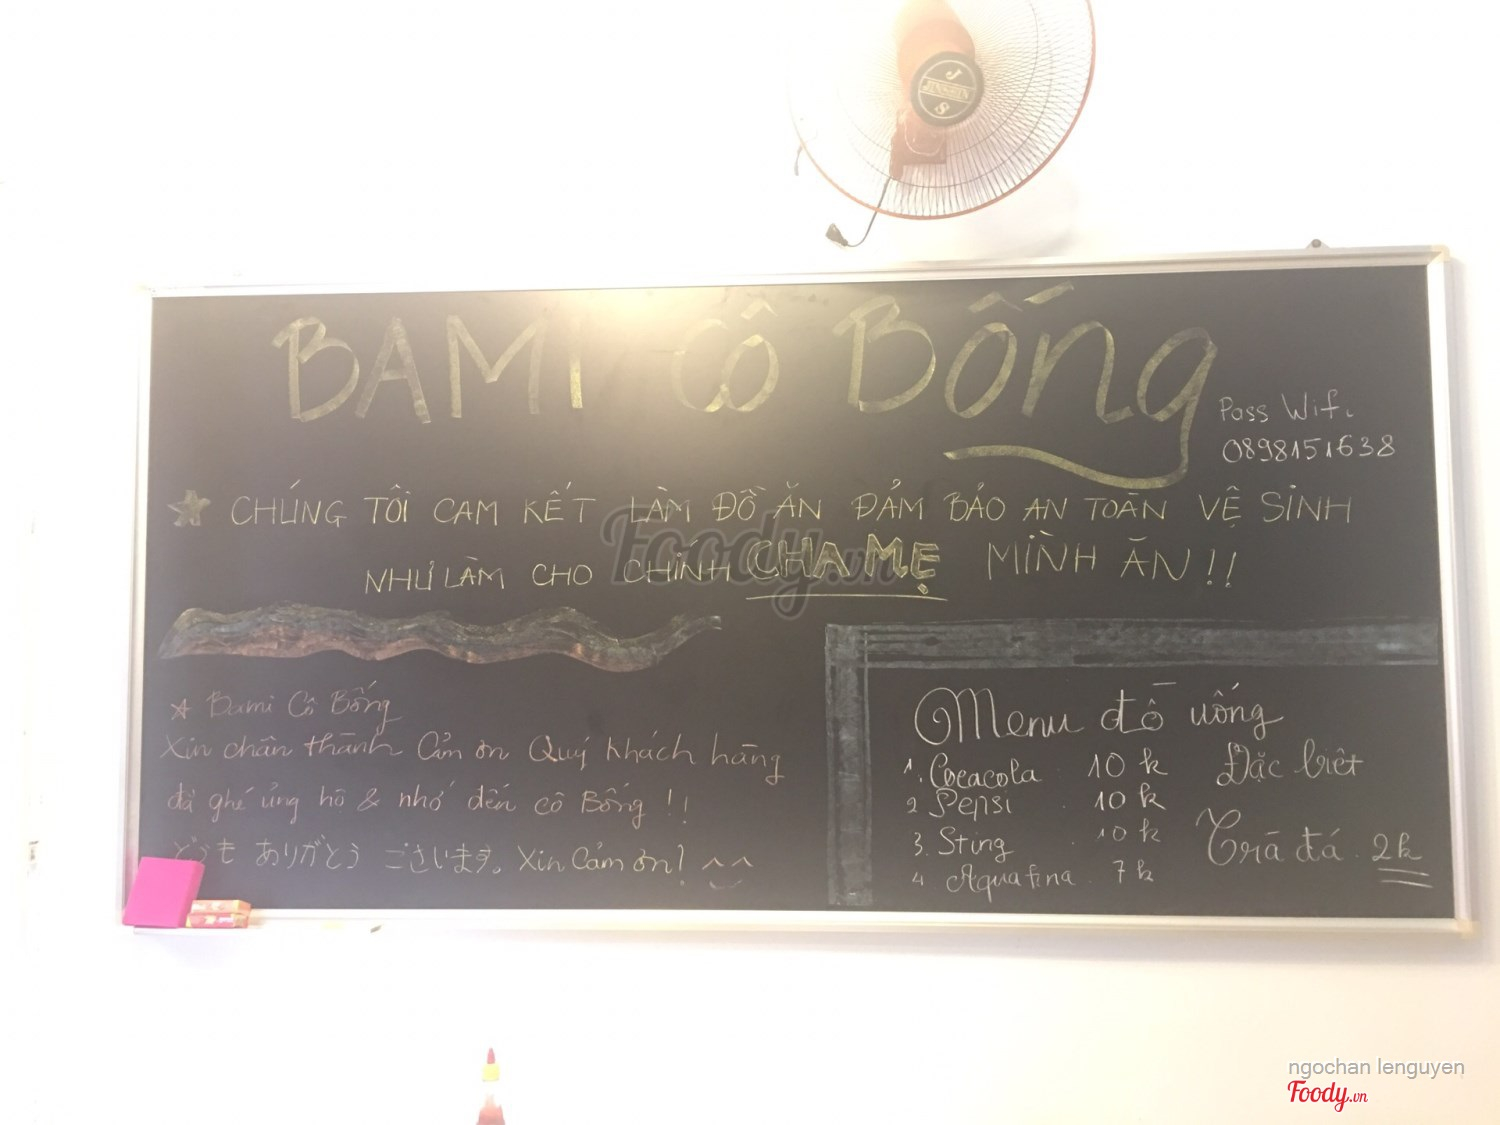 BAMI Cô Bống
Pass Wifi.
0898151638
CHÚNG TÔI CAM KẾT LÀM ĐỒ ĂN ĐẢM BẢO AN TOÀN VỆ SINH
NHƯ LÀM CHO CHÍNH CHA MẸ MÌNH ĂN!!
Foody.vn
Bami Cô Bống
Xin chân thành Cảm ơn Quý khách hàng
đã ghé ủng hộ & nhớ đến cô Bống !!
どうも ありがとう ございます。 Xin Cảm ơn! ^^
Menu đồ uống
1. Cocacola 10k
2 Pepsi 10k
3. Sting 10k
4 Aquafina 7k
Đặc biệt
Trà đá 2k
ngochan lenguyen
Foody.vn